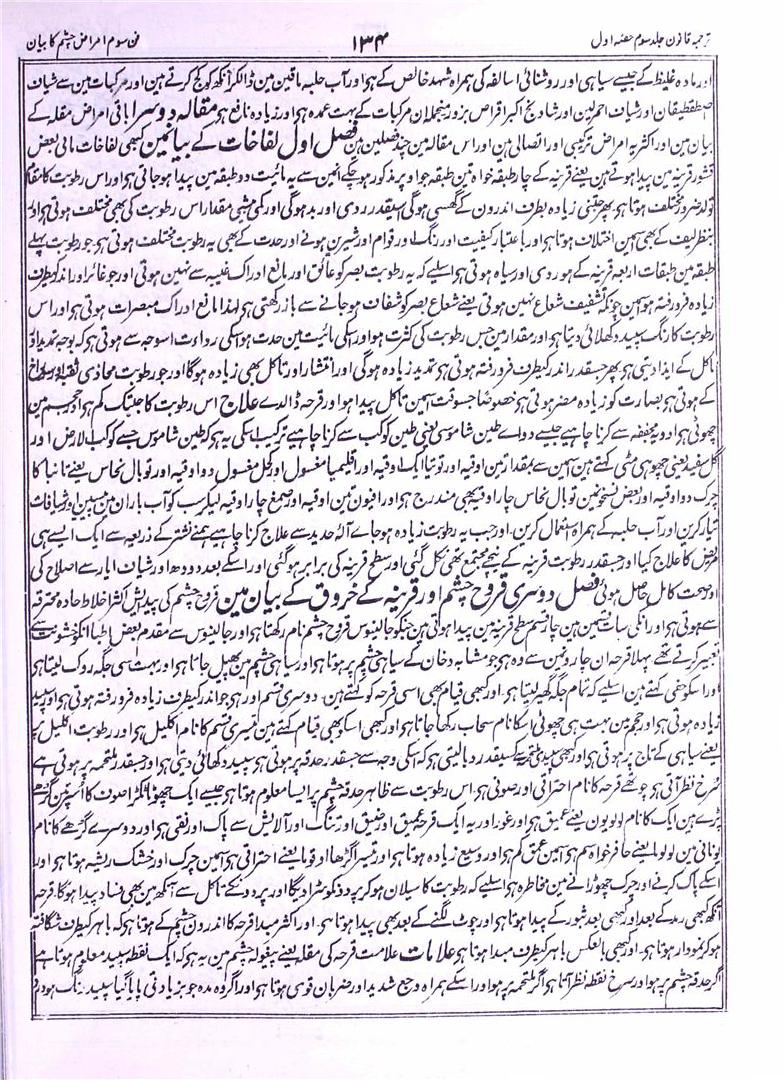 ترجمہ قانون جلد سوم حصہ اول ۱۳۴ فن سوم امراض چشم کا بیان
اور مادہ غلیظ کے جیسے سیاہی اور روشنائی اسالفہ کی ہمراہ شہد خالص کے ہو اور آب حلبہ ماقین مین ڈالکر آنکھ کو کج کرتے ہین اور مرکبات مین سے شیاف
اصطفطیقان اور شیاف احمر لین اور شاذنج اکبر اقراص بزور منجملہ ان مرکبات کے بہت عمدہ ہو اور زیادہ نافع ہو مقالہ دوسرا باقی امراض مقلہ کے
بیان مین اور اکثر یہ امراض ترکیبی اور اتصالی ہین اور اس مقالہ مین چند فصلین ہین فصل اول نفاخات کے بیانمین کبھی نفاخات مائی بعض
قشور قرنیہ مین پیدا ہوتے ہین یعنے قرنیہ کے چار طبقہ خواہ تین طبقہ جو اوپر مذکور ہو چکے انمین سے یہ مائیت دو طبقہ مین پیدا ہو جاتی ہو اور اس رطوبت کا مقام
تولد ضرور مختلف ہوتا ہو پھر جتنی زیادہ بطرف اندرون کے گھسی ہوگی اسیقدر ردی اور بد ہوگی اور کمی بیشی مقدار اس رطوبت کی بھی مختلف ہوتی ہو اور
بنظر کیف کے بھی اسمین اختلاف ہوتا ہو اور باعتبار کیفیت اور رنگ اور قوام اور شیرین ہونے اور حدت کے بھی یہ رطوبت مختلف ہوتی ہو جو رطوبت پہلے
طبقہ مین طبقات اربعہ قرنیہ کے ہو ردی اور سیاہ ہوتی ہو اسلیے کہ یہ رطوبت بصر کو عائق اور مانع ادراک عنبیہ سے نہین ہوتی اور جو غائر اور اندر کیطرف
زیادہ فرورفتہ ہو اسمین چونکہ تشفیف شعاع نہین ہوتی یعنے شعاع بصر کو شفاف ہو جانے سے باز رکھتی ہو لہذا مانع ادراک مبصرات ہوتی ہو اور اس
رطوبت کا رنگ سپید دکھلائی دیتا ہو اور مقدار مین جس رطوبت کی کثرت ہو اور اسکی مائیت مین حدت ہو اسکی رداءت اسوجہ سے ہوتی ہو کہ بوجہ تمدید اور
تاکل کے ایذا دیتی ہو پھر جسقدر اندر کیطرف فرورفتہ ہوتی ہو تمدید زیادہ ہوگی اور انتشار اور تاکل بھی زیادہ ہوگا اور جو رطوبت محاذی ثقبہ اور سوراخ
کے ہوتی ہو بصارت کو زیادہ مضر ہوتی ہو خصوصاً جسوقت اسمین تاکل پیدا ہو اور قرحہ ڈالدے علاج اس رطوبت کا جبتک کم ہو اور حجم مین
چھوٹی ہو ادویہ مجففہ سے کرنا چاہیے جیسے دواے طین شاموسی یعنی طین کوکب سے کرنا چاہیے ترکیب اسکی یہ ہو کہ طین شاموس جسے کوکب الارض اور
گل سفید یعنی چھوہی مٹی کہتے ہین اسمین سے بمقدار تین اوقیہ اور توتیا ایک اوقیہ اور اقلیمیا مغسول اور کحل مغسول دو اوقیہ اور توبال نحاس یعنے تانبا کا
چرک دو اوقیہ اور بعض نسخونمین توبال نحاس چار اوقیہ بھی مندرج ہو اور افیون تین اوقیہ اور صمغ چار اوقیہ لیکر سب کو آب باران مین پیسین اور شیافات
تیار کرین اور آب حلبہ کے ہمراہ استعمال کرین۔ اور جب یہ رطوبت زیادہ ہو جاے آلہ حدید سے علاج کرنا چاہیے ہمنے نشتر کے ذریعہ سے ایک ایسے ہی
مریض کا علاج کیا اور جسقدر رطوبت قرنیہ کے نیچے مجتمع تھی نکل گئی اور سطح قرنیہ کی برابر ہو گئی اور اسکے بعد دودھ اور شیاف ابار سے اصلاح کی
اور صحت کامل حاصل ہوئی فصل دوسری قروح چشم اور قرنیہ کے خروق کے بیان مین قروح چشم کی پیدایش اکثر اخلاط حادہ محترقہ
سے ہوتی ہو اور انکی سات قسمین ہین چار قسم سطح قرنیہ مین پیدا ہوتی ہین جنکو جالینوس قروح چشم نام رکھتا ہو اور جالینوس سے مقدم بعض اطبا انکو خشونت سے
تعبیر کرتے تھے پہلا قرحہ ان چارونمین سے وہ ہو جو مشابہ دخان کے سیاہی چشم پر ہوتا ہو اور سیاہی چشم مین پھیل جاتا ہو اور بہت سی جگہ روک لیتا ہو
اور اسکو خفی کہتے ہین اسلیے کہ تمام جگہ گھیر لیتا ہو۔ اور کبھی قیام بھی اسی قرحہ کو کہتے ہین۔ دوسری قسم اور ہو جو اندر کیطرف زیادہ فرورفتہ ہوتی ہو اور سپید
زیادہ ہوتی ہو اور حجم مین بہت ہی چھوٹی اسکا نام سحاب رکھا جاتا ہو اور کبھی اسکو بھی قیام کہتے ہین تیسری قسم کا نام اکلیل ہو اور رطوبت اکلیل پر
یعنے سیاہی کے تاج پر ہوتی ہو اور کبھی سپیدی ملتحمہ سے کسیقدر دبا لیتی ہو کہ اسکی وجہ سے جسقدر حدقہ پر ہوتی ہو سپید دکھائی دیتی ہو اور جسقدر ملتحمہ پر ہوتی ہے
سرخ نظر آتی ہو چوتھے قرحہ کا نام احتراقی اور صوفی ہو۔ اس رطوبت سے ظاہر حدقہ چشم پر ایسا معلوم ہوتا ہو جیسے ایک چھوٹا ٹکڑا صوف کا اسپر تین گڑھے
پڑے ہین ایک کا نام لوبون یعنے عمیق ہو اور غور اور یہ ایک قرحہ عمیق اور ضیق اور تنگ اور آلایش سے پاک اور نقی ہو اور دوسرے گڑھے کا نام
یونانی مین لولوما یعنے حافر خواہ سم ہو اسمین عمق کم ہو اور وسیع زیادہ ہوتا ہو اور تیسرا گڑھا اوقوما یعنے احتراقی ہو اسمین چرک اور خشک ریشہ ہوتا ہو اور
اسکے پاک کرنے اور چرک چھوڑانے مین مخاطرہ ہو اسلیے کہ رطوبت کا سیلان ہو کر پردونکو سڑا دیگا اور پردونکے تاکل سے آنکھ مین بھی فساد پیدا ہوگا۔ قرحہ
آنکھ کبھی رمد کے بعد اور کبھی بعد بثور کے پیدا ہوتا ہو اور چوٹ لگنے کے بعد بھی پیدا ہوتا ہو۔ اور اکثر مبدا قرحہ کا اندرون چشم کے ہوتا ہو کہ باہر کیطرف شگافتہ
ہو کر نمودار ہوتا ہو۔ اور کبھی بالعکس باہر کیطرف مبدا ہوتا ہو علامات علامت قرحہ کی مقلہ یعنے بیغولہ چشم مین یہ ہو کہ ایک نقطہ سپید معلوم ہوتا ہے
اگر حدقہ چشم پر ہو اور سرخ نقطہ نظر آتا ہو اگر ملتحمہ پر ہو اور اسکے ہمراہ وجع شدید اور ضربان قوی ہوتا ہو اور اگر وہ مدہ جو بزیادتی پایا گیا سپید رنگ ہو درد